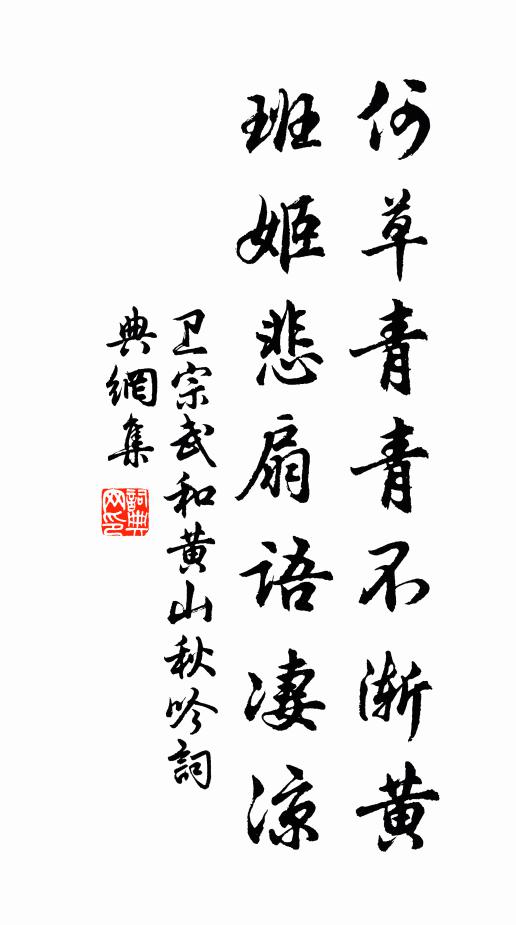 何草青青不渐黄
班姬悲扇语凄凉
卫宗武和黄山秋吟詞
典網集
詞典网印